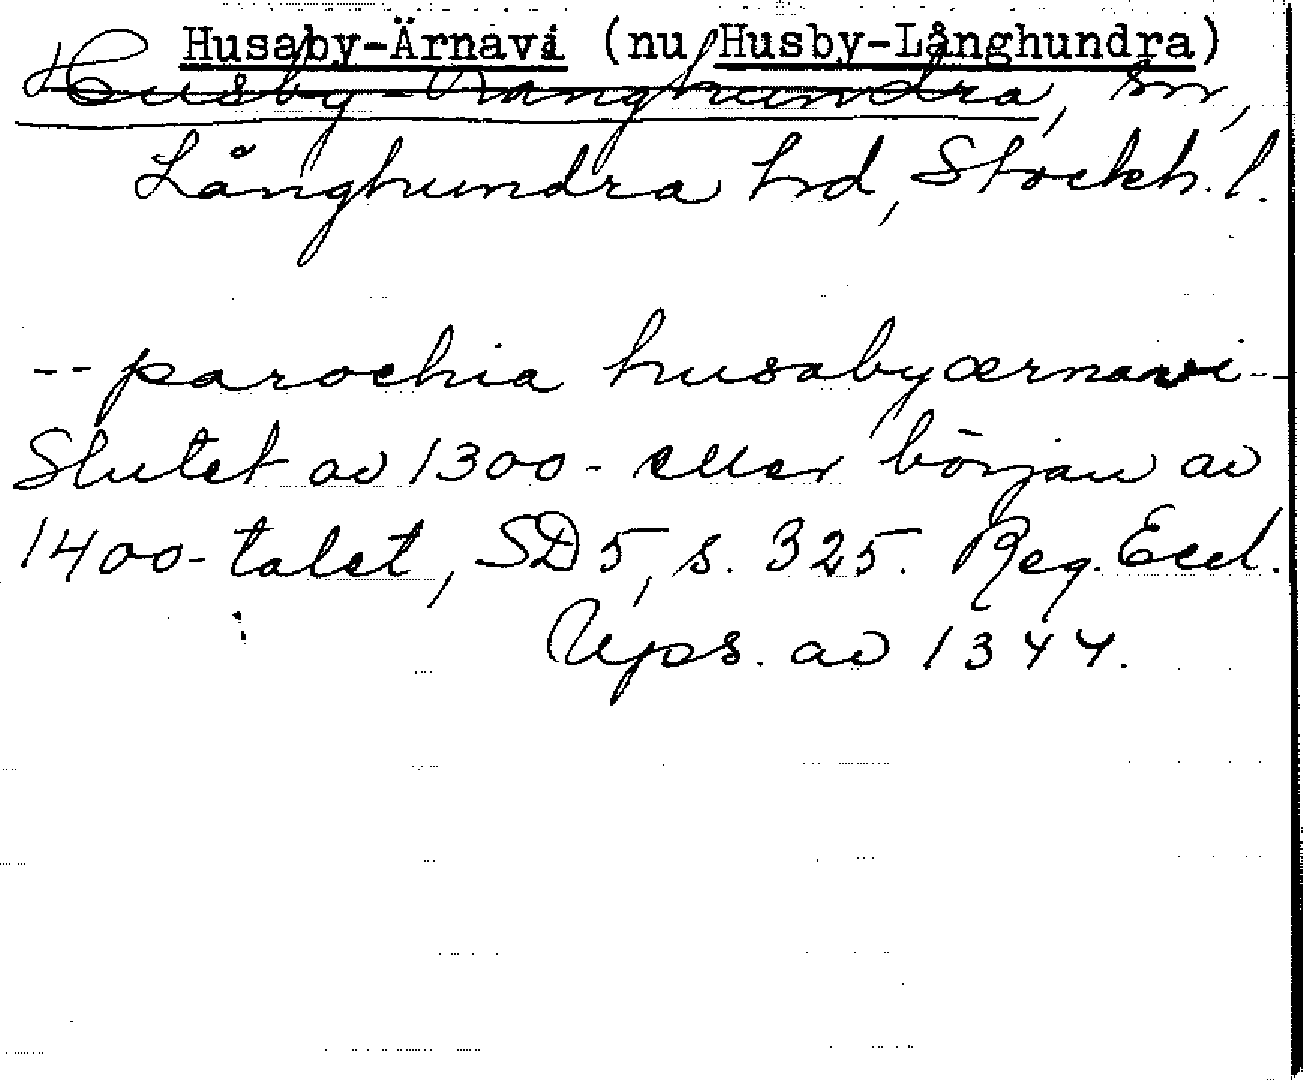 Husaby-Ärnavi (nu Husby-Långhundra)
Husby-Långhundra, sn,
Långhundra hd, Stockh. l.
-- parochia husabyærnavi --
Slutet av 1300- eller början av
1400-talet, SD 5, s. 325. Reg. Eccl.
Ups. av 1344.